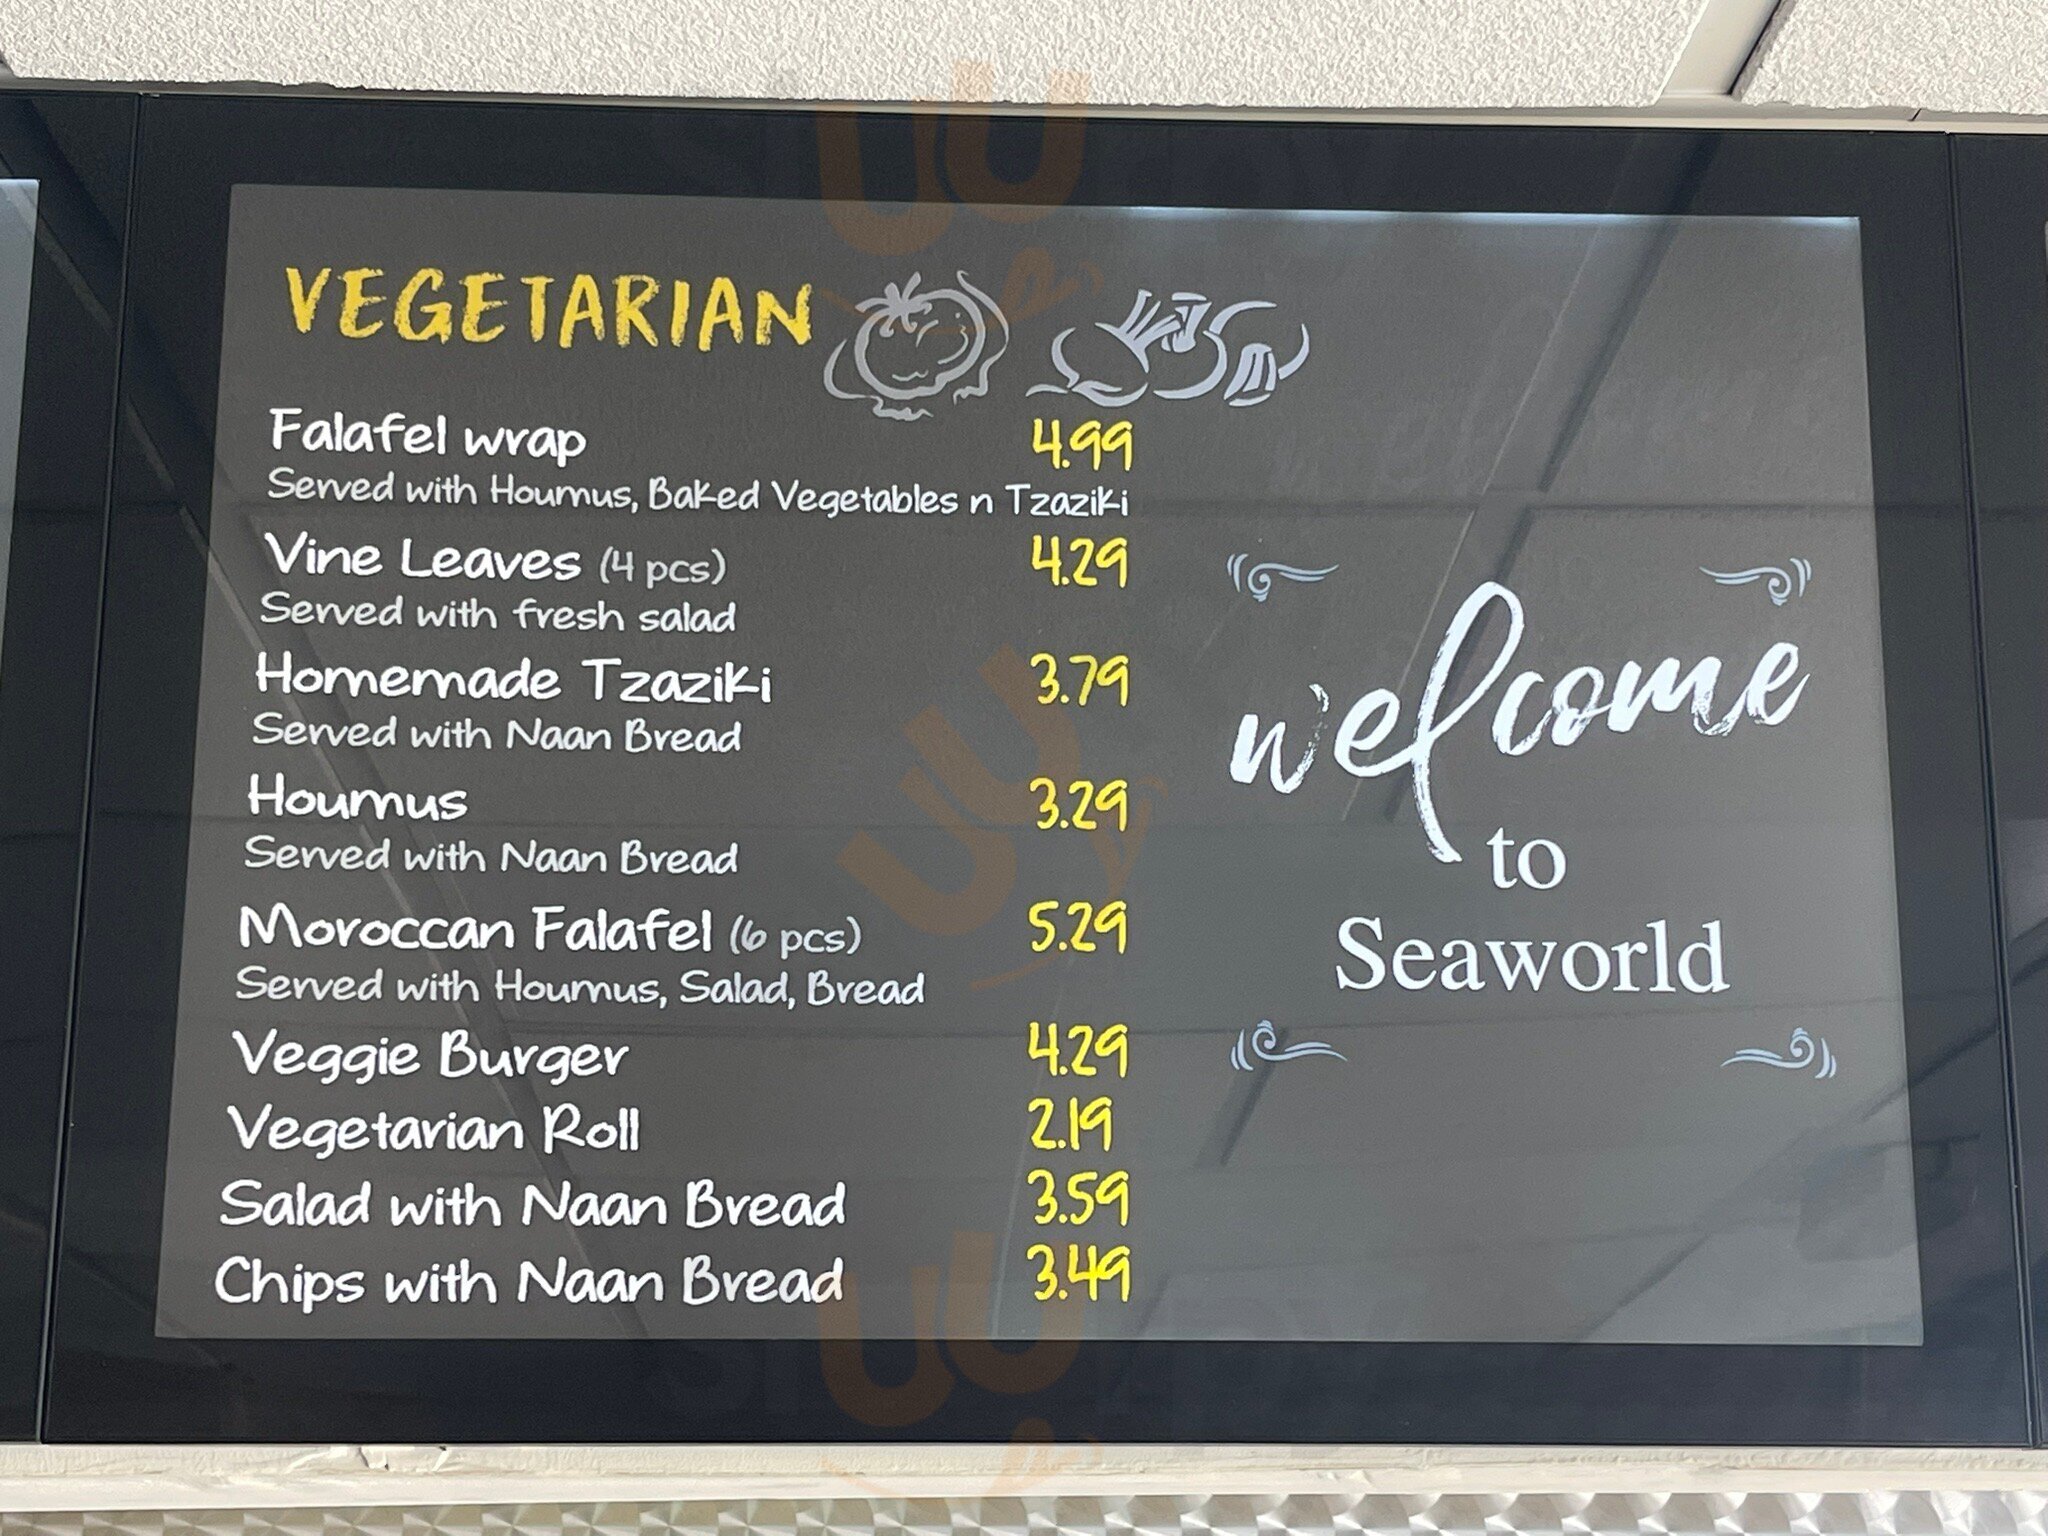 VEGETARIAN
Falafel wrap 4.99
Served with Houmus, Baked Vegetables n Tzaziki
Vine Leaves (4 pcs) 4.29
Served with fresh salad
Homemade Tzaziki 3.79
Served with Naan Bread
Houmus 3.29
Served with Naan Bread
Moroccan Falafel (6 pcs) 5.29
Served with Houmus, Salad, Bread
Veggie Burger 4.29
Vegetarian Roll 2.19
Salad with Naan Bread 3.59
Chips with Naan Bread 3.49
welcome
to
Seaworld